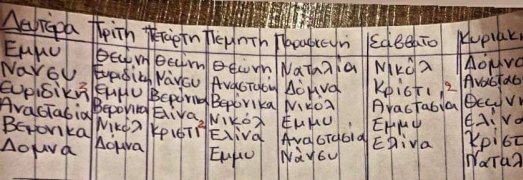 Δευτέρα Τρίτη Τετάρτη Πέμπτη Παρασκευή Σάββατο Κυριακ
Εμμυ Θεώνη Θεώνη Θεώνη Ναταλία Νικόλ Δόμνα
Νάνσυ Ευριδίκη Νάνσυ Αναστασ Δόμνα Κρίστι 2 Αναστασ
Ευριδίκη 2 Εμμυ Βερόνι Βερόνικα Νικόλ Αναστασία Θεων
Αναστασία Βερονικα Ελίνα Νικόλ Εμμυ Εμμυ Ελίν
Βερόνικα Νικόλ Κριστι 2 Ελίνα Αναστασία Ελίνα Κρίστ
Δομνα Δομνα Εμμυ Νάνσυ Ναταλ